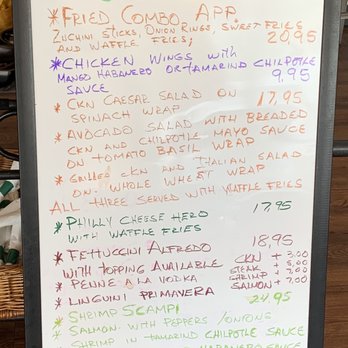 * FRIED COMBO APP
ZUCHINI STICKS, ONION RINGS, SWEET FRIES
AND WAFFLE FRIES; 20,95
* CHICKEN WINGS with
MANGO HABANERO OR TAMARIND CHILPOTLE
SAUCE 9,95
* CKN CAESAR SALAD ON 17,95
SPINACH WRAP
* AVOCADO SALAD WITH BREADED
CKN AND CHILPOTLE MAYO SAUCE
ON TOMATO BASIL WRAP
* GRILLED CKN AND ITALIAN SALAD
ON WHOLE WHEAT WRAP
ALL THREE SERVED WITH WAFFLE FRIES
* PHILLY CHEESE HERO 17,95
WITH WAFFLE FRIES
* FETTUCCINI ALFREDO 18,95
WITH TOPPING AVAILABLE CKN + 3,00
* PENNE A LA VODKA STEAK + 5,00
* LINGUINI PRIMAVERA SHRIMP + 7,00
SALMON + 7,00
* SHRIMP SCAMPI 24,95
* SALMON WITH PEPPERS / ONIONS
* SHRIMP IN TAMARIND CHILPOTLE SAUCE
HABANERO SAUCE